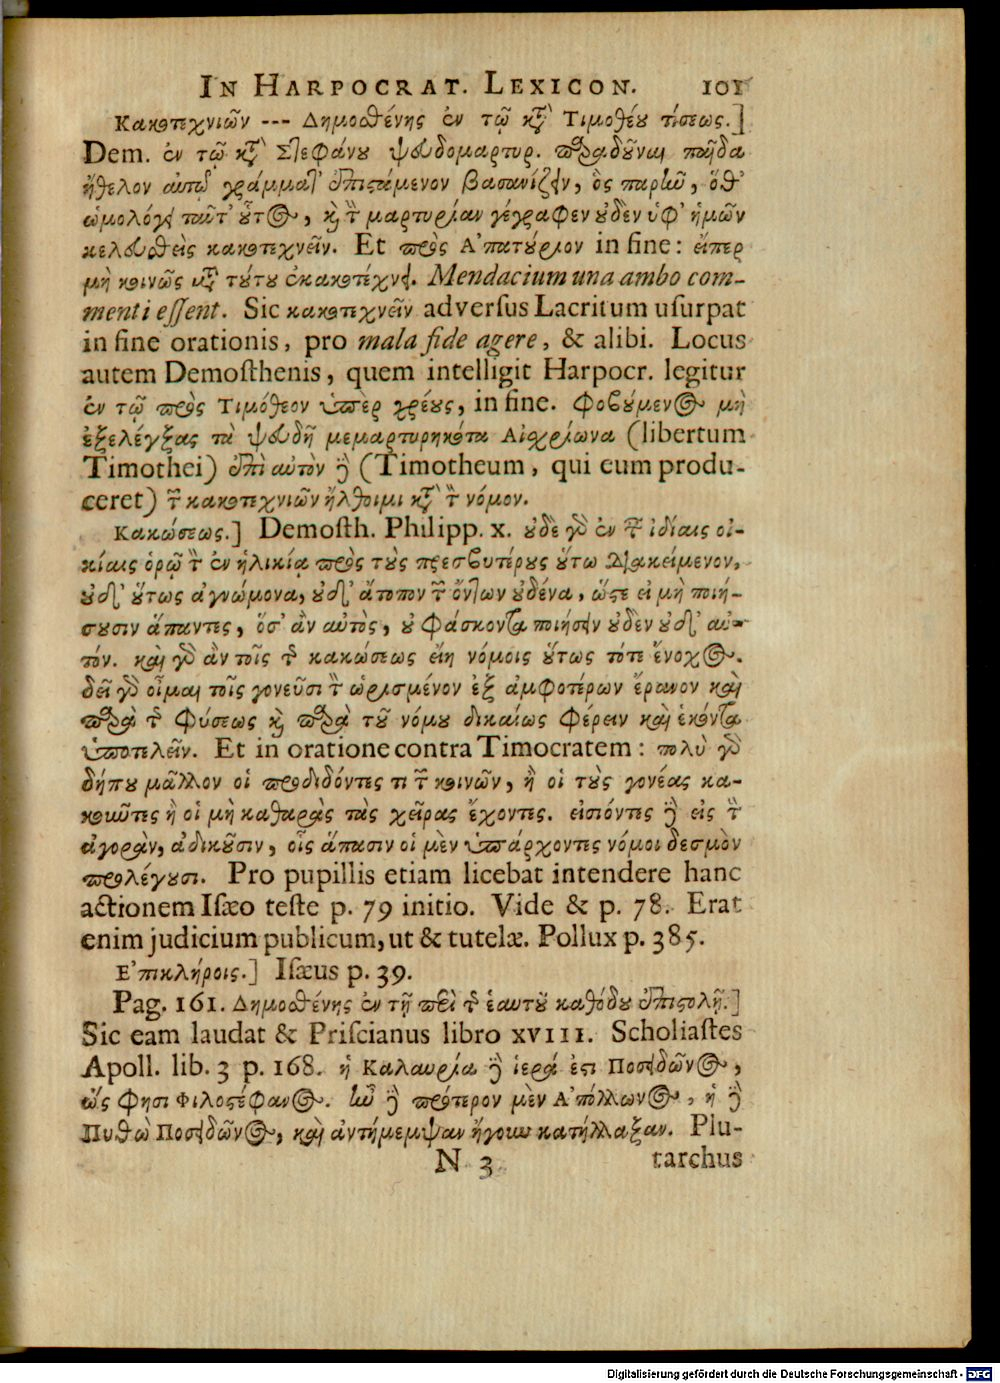 IN HARPOCRAT. LEXICON. 101
Κακοτεχνιῶν --- Δημοσθένης ἐν τῷ κατὰ Τιμοθέου πίσεως.]
Dem. ἐν τῷ κατὰ Στεφάνου ψευδομαρτυρ. παραδοῦναι παῖδα
ἤθελον αὐτῷ γράμματ' ἐπιστάμενον βασανίζειν, ὃς παρῆν, ὅθ'
ὡμολόγει ταῦτ' οὗτος, καὶ τὴν μαρτυρίαν γέγραφεν οὐδὲν ὑφ' ἡμῶν
κελευσθεὶς κακοτεχνεῖν. Et πρὸς Ἀπατούριον in fine: εἴπερ
μὴ κοινῶς μετὰ τούτου ἐκακοτέχνει. Mendacium una ambo com-
menti essent. Sic κακοτεχνεῖν adversus Lacritum usurpat
in fine orationis, pro mala fide agere, & alibi. Locus
autem Demosthenis, quem intelligit Harpocr. legitur
ἐν τῷ πρὸς Τιμόθεον ὑπὲρ χρέους, in fine. Φοβούμενος μὴ
ἐξελέγξας τὰ ψευδῆ μεμαρτυρηκότα Αἰσχρίωνα (libertum
Timothei) ἐπὶ αὐτὸν δὲ (Timotheum, qui eum produ-
ceret) τῶν κακοτεχνιῶν ἤλθοιμι κατὰ τὸν νόμον.
Κακώσεως.] Demosth. Philipp. x. οὐδὲ γὰρ ἐν ταῖς ἰδίαις οἰ-
κίαις ὁρῶ τὸν ἐν ἡλικίᾳ πρὸς τοὺς πρεσβυτέρους οὕτω διακείμενον,
οὐδ' οὕτως ἀγνώμονα, οὐδ' ἄτοπον τῶν ὄντων οὐδένα, ὥστε εἰ μὴ ποιή-
σουσιν ἅπαντες, ὅσ' ἂν αὐτὸς, οὐ φάσκοντα ποιήσειν οὐδὲν οὐδ' αὐ-
τόν. καὶ γὰρ ἂν τοῖς τῆς κακώσεως εἴη νόμοις οὕτως τότε ἔνοχος.
δεῖ γὰρ οἶμαι τοῖς γονεῦσι τὸν ὡρισμένον ἐξ ἀμφοτέρων ἔρανον καὶ
παρὰ τῆς Φύσεως καὶ παρὰ τοῦ νόμου δικαίως φέρειν καὶ ἑκόντα
ὑποτελεῖν. Et in oratione contra Timocratem: πολὺ γὰρ
δήπου μᾶλλον οἱ προδιδόντες τι τῶν κοινῶν, ἢ οἱ τοὺς γονέας κα-
κοῦντες ἢ οἱ μὴ καθαρὰς τὰς χεῖρας ἔχοντες. εἰσιόντες δὲ εἰς τὴν
ἀγορὰν, ἀδικοῦσιν, οἷς ἅπασιν οἱ μὲν ὑπάρχοντες νόμοι δεσμὸν
προλέγουσι. Pro pupillis etiam licebat intendere hanc
actionem Isæo teste p. 79 initio. Vide & p. 78. Erat
enim judicium publicum, ut & tutelæ. Pollux p. 385.
Ἐπικλήροις.] Isæus p. 39.
Pag. 161. Δημοσθένης ἐν τῇ περὶ τῆς ἑαυτοῦ καθόδου ἐπιστολῇ.]
Sic eam laudat & Priscianus libro XVIII. Scholiastes
Apoll. lib. 3 p. 168. ἡ Καλαυρία δὲ ἱερά ἐστι Ποσειδῶνος,
ὥς φησι Φιλοστέφανος. ἦν δὲ πρότερον μὲν Ἀπόλλωνος, ἡ δὲ
Πυθὼ Ποσειδῶνος, καὶ ἀντήμειψαν ἤγουν κατήλλαξαν. Plu-
N 3 tarchus
Digitalisierung gefördert durch die Deutsche Forschungsgemeinschaft - DFG